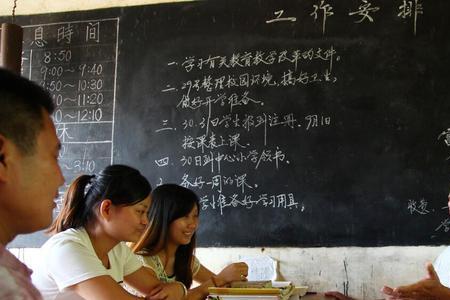 息时间
8:50
9:00～9:40
～10:30
～11:20
～12:10
休
～3:10
工作安排
一. 学习有关教育教学改革的文件。
二. 29号整理校园环境，搞好卫生，
做好开学准备。
三. 30.31日学生报到注册，9月1日
按课表上课。
四. 30日到中心小学领书。
备好一周的课。
学生准备好学习用具。